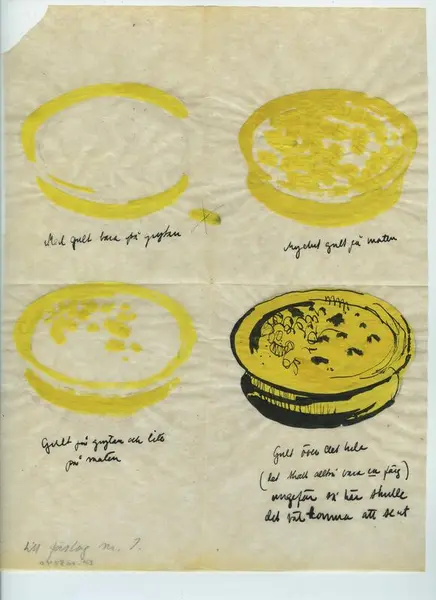 Med gult bara på grytan
Mycket gult på maten
Gult på grytan och lite
på maten
Gult över det hela
(det skall alltså vara en färg)
ungefär så här skulle
det väl komma att se ut
till förslag nr. 7.